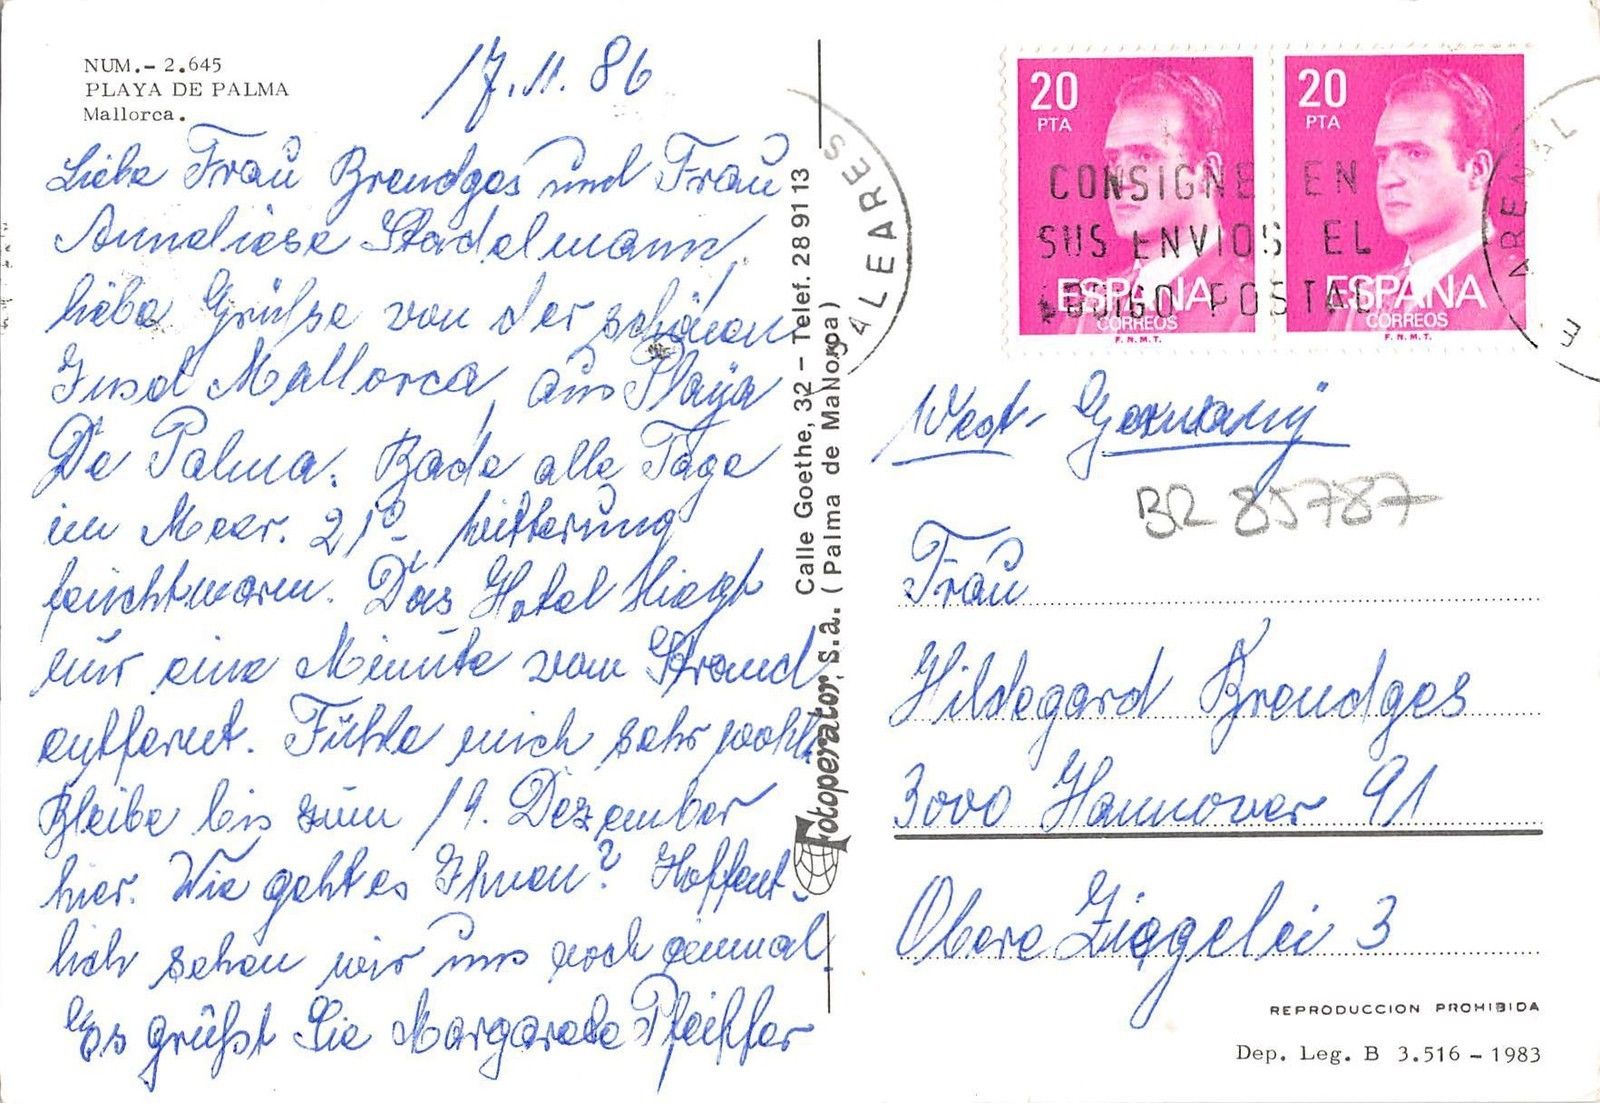 NUM.- 2.645
PLAYA DE PALMA
Mallorca.
17.11.86
Liebe Frau Brendges und Frau
Anneliese Stadelmann,
liebe Grüße von der schönen
Insel Mallorca, aus Playa
De Palma. Bade alle Tage
im Meer. 21° Witterung
feuchtwarm. Das Hotel liegt
nur eine Minute vom Strand
entfernt. Fühle mich sehr wohl.
Bleibe bis zum 19. Dezember
hier. Wie geht es Ihnen? Hoffent-
lich sehen wir uns noch einmal.
Es grüßt Sie Margarete Pfeiffer
Fotoperator, s.a. Calle Goethe, 32 - Telef. 28 91 13
(Palma de Mallorca)
20
PTA
ESPAÑA
CORREOS
F.N.M.T.
20
PTA
ESPAÑA
CORREOS
F.N.M.T.
BALEARES
CONSIGNE EN
SUS ENVIOS EL
CODIGO POSTAL
ARENAL
West-Germany
BR 85787
Frau
Hildegard Brendges
3000 Hannover 91
Obere Ziegelei 3
REPRODUCCION PROHIBIDA
Dep. Leg. B 3.516 - 1983